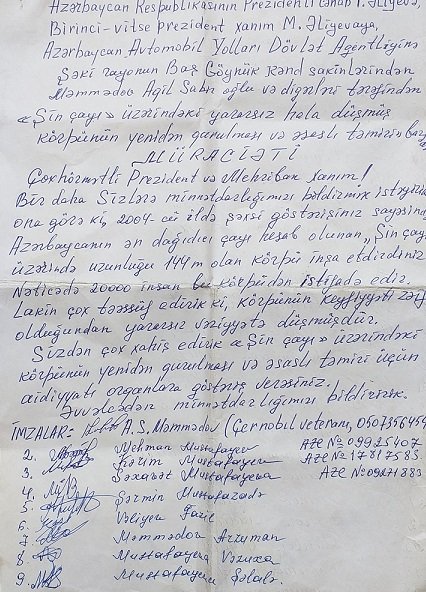 Azərbaycan Respublikasının Prezidenti cənab İ. Əliyevə,
Birinci-vitse prezident xanım M. Əliyevaya,
Azərbaycan Avtomobil Yolları Dövlət Agentliyinə
Şəki rayonun Baş Göynük kənd sakinlərindən
Məmmədov Aqil Sabir oğlu və digərləri tərəfindən
«Şin çayı» üzərindəki yararsız hala düşmüş
körpünün yenidən qurulması və əsaslı təmiri
MÜRACİƏTİ
Çoxhörmətli Prezident və Mehriban xanım!
Bir daha Sizlərə minnətdarlığımızı bildirmək istəyirik
ona görə ki, 2004-cü ildə şəxsi göstərişiniz sayəsində
Azərbaycanın ən dağıdıcı çayı hesab olunan „Şin çayı
üzərində uzunluğu 144 m olan körpü inşa etdirdiniz
Nəticədə 20000 insan bu körpüdən istifadə edir.
Lakin çox təəssüf edirik ki, körpünün keyfiyyəti zəif
olduğundan yararsız vəziyyətə düşmüşdür.
Sizdən çox xahiş edirik «Şin çayı» üzərindəki
körpünün yenidən qurulması və əsaslı təmiri üçün
aidiyyatı orqanlara göstəriş verəsiniz.
Əvvəlcədən minnətdarlığımızı bildiririk.
İMZALAR: A.S. Məmmədov (Çernobıl veteranı, 0507356454
2. Mehman Mustafayev AZE № 09925407
3. Kərim Mustafayev AZE № 17817583
4. Səxavət Mustafayeva AZE № 09271883
5. Şərmin Mustafazadə
6. Vəliyev Fazil
7. Məmmədov Arzuman
8. Mustafayeva
9. Mustafayeva Şəlalə.